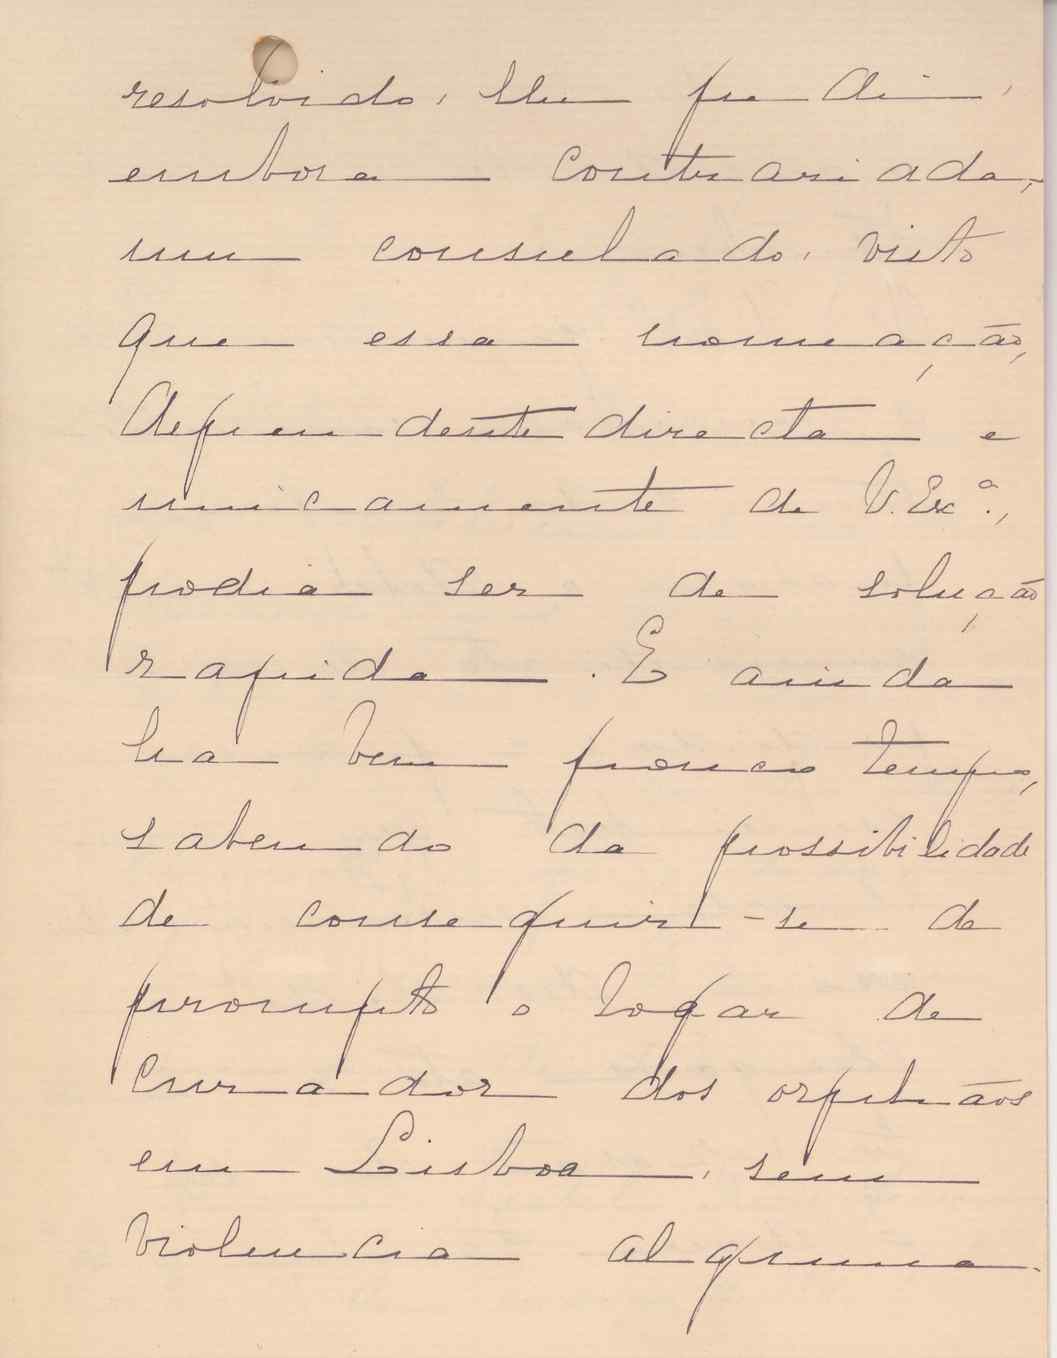 resolvido, lhe pedi,
embora contrariada,
um consulado, visto
que essa nomeação,
dependente directa e
unicamente de V. Exª.,
podia ser de solução
rapida. E ainda
ha bem pouco tempo,
sabendo da possibilidade
de conseguir-se de
prompto o logar de
curador dos orphãos
em Lisboa, sem
violencia alguma